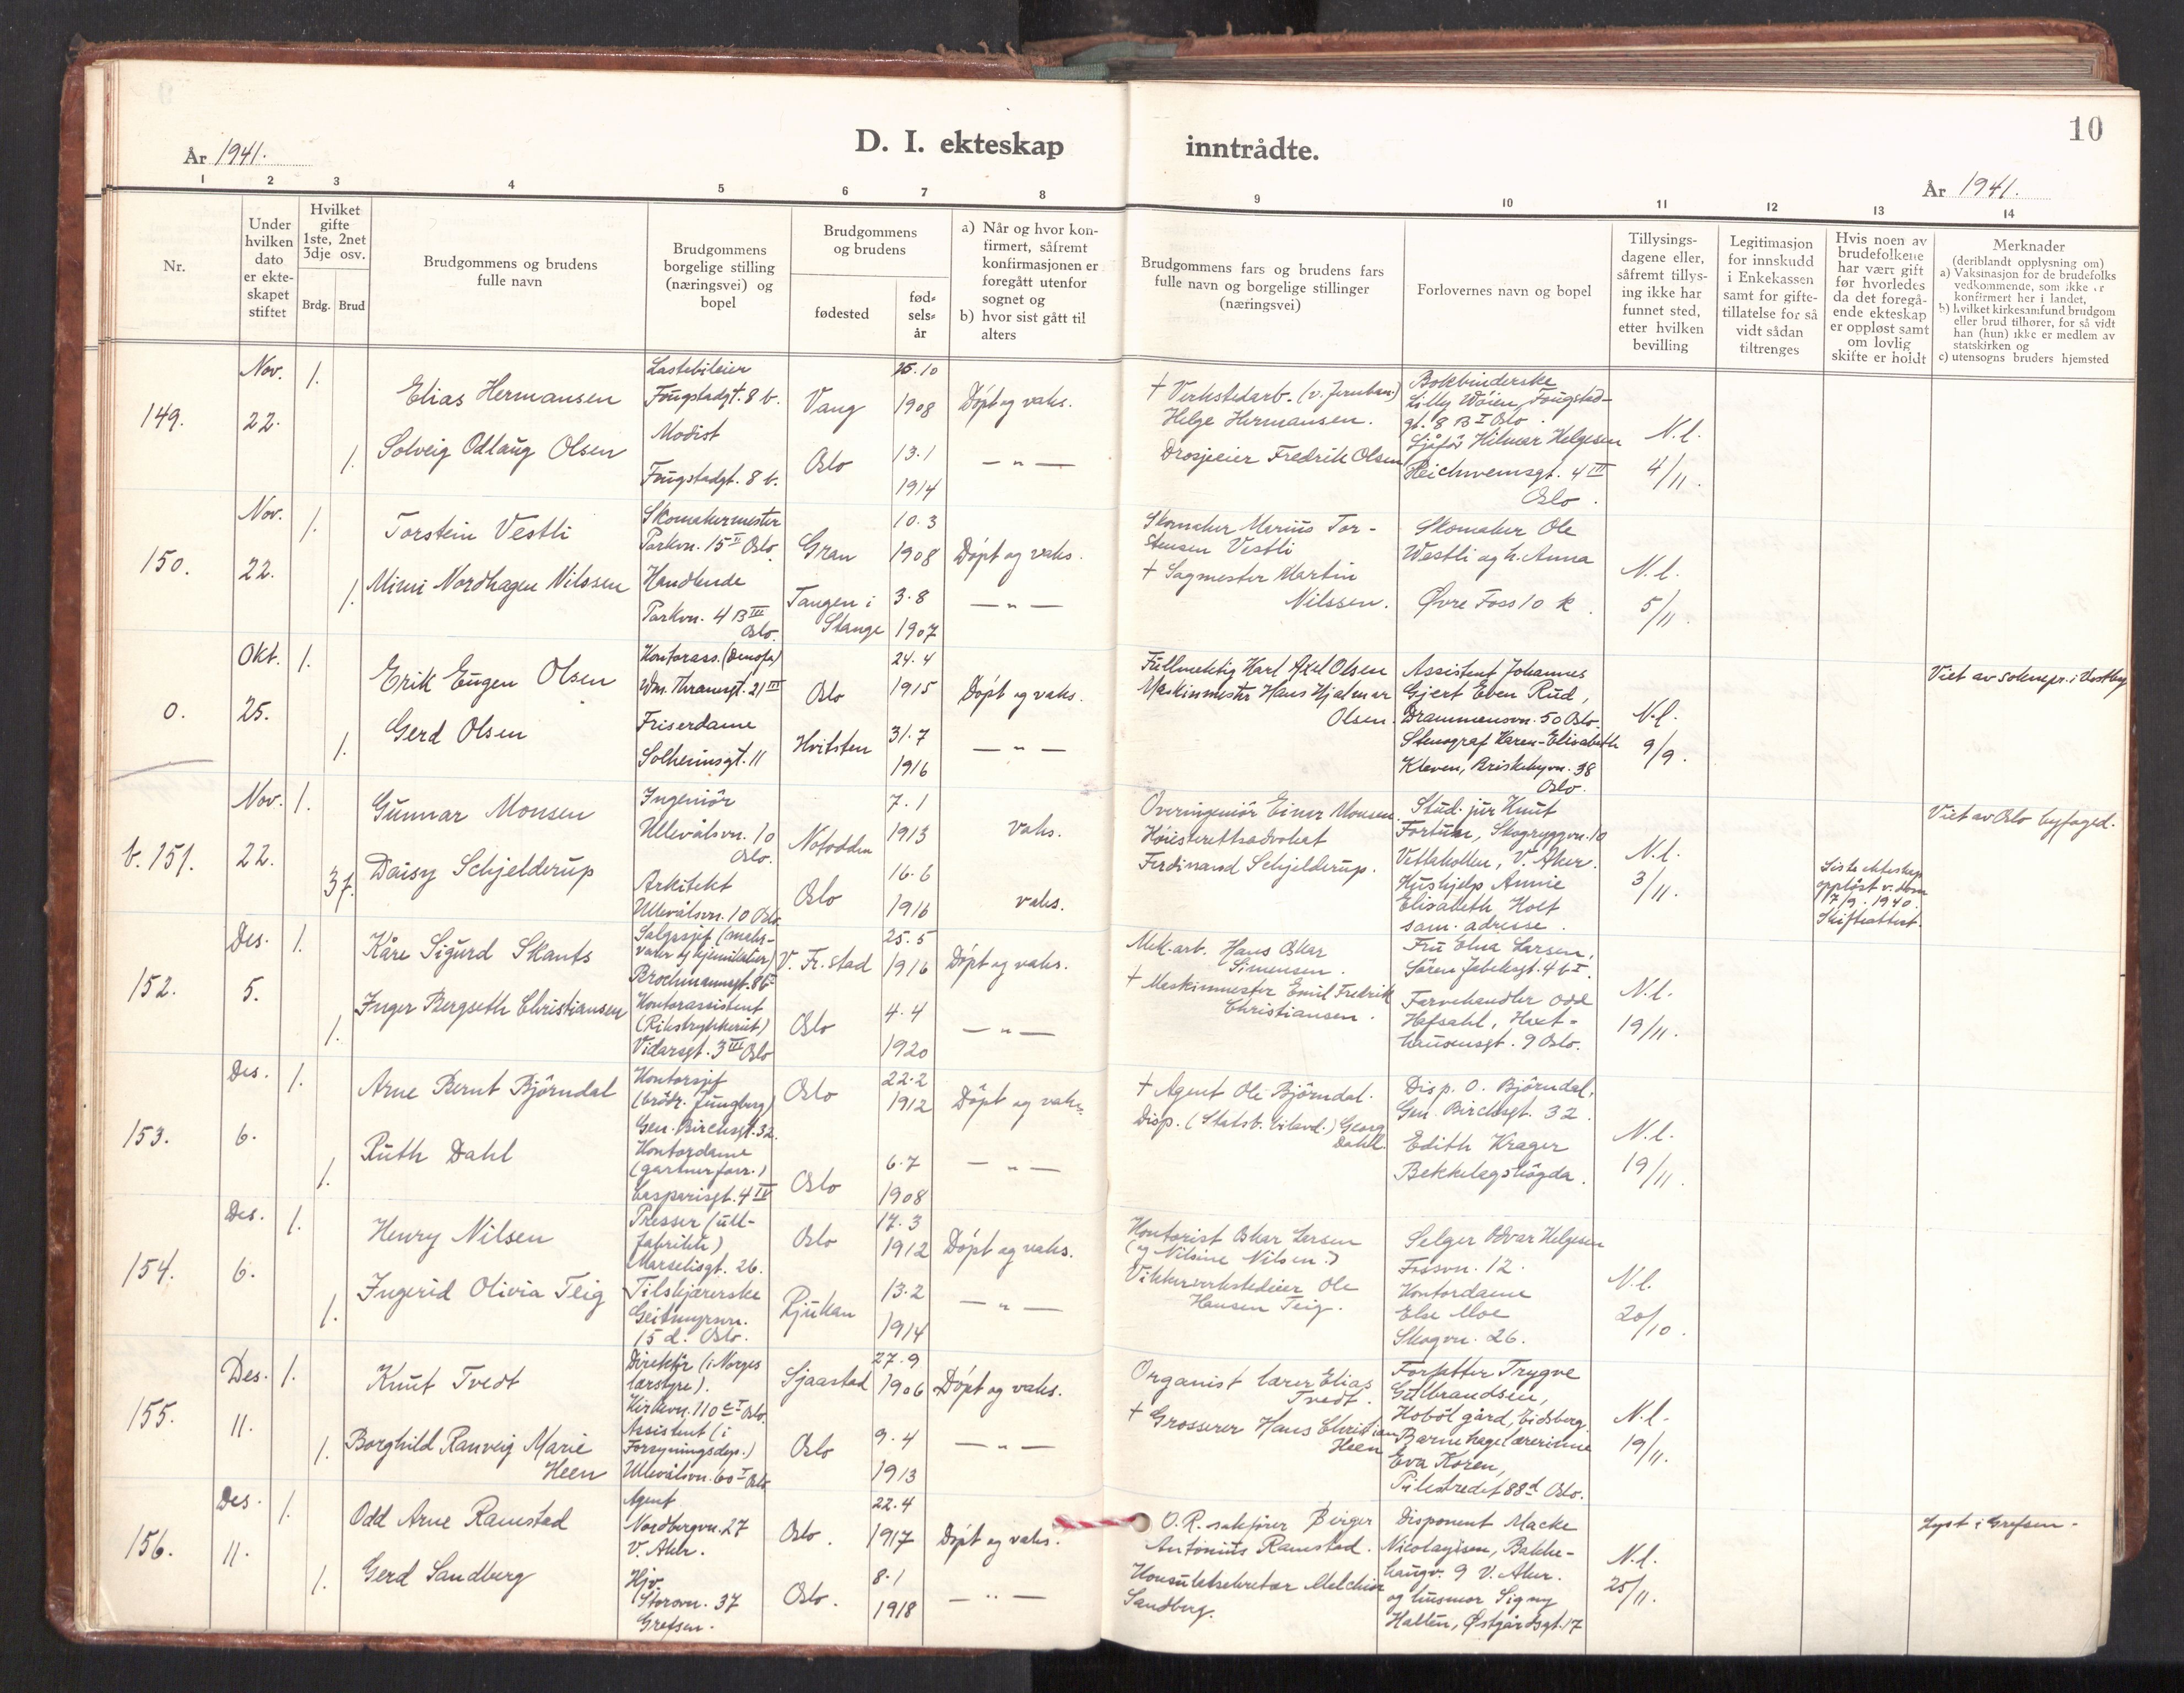 10
D. I. ekteskap inntrådte.
År 1941.
År 1941.
1 2 3 4 5 6 7 8 9 10 11 12 13 14
Nr.
Under
hvilken
dato
er ekte-
skapet
stiftet
Hvilket
gifte
1ste, 2net
3dje osv.
Brdg. Brud
Brudgommens og brudens
fulle navn
Brudgommens
borgelige stilling
(næringsvei) og
bopel
Brudgommens
og brudens
fødested
fød-
sels-
år
a) Når og hvor kon-
firmert, såfremt
konfirmasjonen er
foregått utenfor
sognet og
b) hvor sist gått til
alters
Brudgommens fars og brudens fars
fulle navn og borgelige stillinger
(næringsvei)
Forlovernes navn og bopel
Tillysings-
dagene eller,
såfremt tillys-
ing ikke har
funnet sted,
etter hvilken
bevilling
Legitimasjon
for innskudd
i Enkekassen
samt for gifte-
tillatelse for så
vidt sådan
tiltrenges
Hvis noen av
brudefolkene
har vært gift
før hvorledes
da det foregå-
ende ekteskap
er oppløst samt
om lovlig
skifte er holdt
Merknader
(deriblandt opplysning om)
a) Vaksinasjon for de brudefolks
vedkommende, som ikke er
konfirmert her i landet,
b) hvilket kirkesamfund brudgom
eller brud tilhører, for så vidt
han (hun) ikke er medlem av
statskirken og
c) utensogns bruders hjemsted
149.
Nov.
22.
1.
Elias Hermansen
Lastebileier
Fougstadgt. 8 b.
Vang
15.10
1908
Døpt og vaks.
1.
Solveig Odlaug Olsen
Modist
Fougstadgt. 8 b.
Oslo
13.1
1914
— " —
† Verkstedarb. (v. Jernban.)
Helge Hermansen.
Drosjeeier Fredrik Olsen
Bokbinderske
Lilly Wøien, Fougstad-
gt. 8 B I Oslo.
Sjåfør Hilmar Helgesen
Reichweinsgt. 4 III
Oslo.
N.l.
4/11.
150.
Nov.
22.
1.
Torstein Vestli
Skomakermester
Parkvn. 15 II Oslo.
Gran
10.3
1908
Døpt og vaks.
1.
Mimi Nordhagen Nilssen
Handlende
Parkvn. 4 B III
Oslo.
Tangen i
Stange
3.8
1907
— " —
Skomaker Marius Tor-
stensen Vestli
† Sagmester Martin
Nilssen.
Skomaker Ole
Westli og h. Anna
Øvre Foss 10 k.
N.l.
5/11.
0.
Okt.
25.
1.
Erik Eugen Olsen
Kontorass. (Denofa)
Wm. Thranesgt. 21 III
Oslo
24.4
1915
Døpt og vaks.
1.
Gerd Olsen
Friserdame
Solheimsgt. 11
Hvitsten
31.7
1916
— " —
Fullmektig Karl Axel Olsen
Maskinmester Hans Hjalmar
Olsen.
Assistent Johannes
Gjert Even Rud,
Drammensvn. 50 Oslo.
Stenograf Karen-Elisabeth
Kleven, Briskebyvn. 38
Oslo.
N.l.
9/9.
Viet av soknepr. i Vestby
b. 151.
Nov.
22.
1.
Gunnar Monsen
Ingeniør
Ullevålsvn. 10
Oslo.
Notodden
7.1
1913
vaks.
3 f.
Daisy Schjelderup
Arkitekt
Ullevålsvn. 10 Oslo
Oslo
16.6
1916
vaks.
Overingeniør Einar Monsen.
Høiesterettsadvokat
Ferdinand Schjelderup.
Stud. jur Knut
Fortun, Skogryggvn. 10
Vettakollen, V. Aker.
Hushjelp Annie
Elisabeth Holt
sam. adresse.
N.l.
3/11.
Siste ekteskap
oppløst v. dom
17/9. 1940.
Skifteattest.
Viet av Oslo byfoged.
152.
Des.
5.
1.
Kåre Sigurd Skants
V. Fr.stad
25.5
1916
Døpt og vaks.
1.
Inger Bergseth Christiansen
Kontorassistent
(Rikstrykkeriet)
Vidarsgt. 3 III Oslo
Oslo
4.4
1920
— " —
Mek.arb. Hans Oskar
Simensen.
† Maskinmester Emil Fredrik
Christiansen.
Fru Elna Larsen,
Søren Jabeksgt. 4 b I.
Farvehandler Odd
Hafsahl, Haxt-
hausensgt. 9 Oslo.
N.l.
19/11.
153.
Des.
6.
1.
Arne Bernt Bjørndal
Kontorsjef
(brødr. Ljungberg)
Gen. Birchsgt. 32.
Oslo
22.2
1912
Døpt og vaks.
1.
Ruth Dahl
Kontordame
(gartnerforr.)
Casparisgt. 4 IV
Oslo
6.7
1908
— " —
† Agent Ole Bjørndal.
Disp. (Statsb. bilavd.) Georg
Dahl.
Disp. O. Bjørndal,
Gen. Birchsgt. 32.
Edith Krager
Bekkelagshøgda.
N.l.
19/11.
154.
Des.
6.
1.
Henry Nilsen
Presser (ull-
fabrikk)
Marselisgt. 26.
Oslo
17.3
1912
Døpt og vaks.
1.
Ingerid Olivia Teig
Tilskjærerske
Geitmyrsvn.
15 d. Oslo.
Rjukan
13.2
1914
— " —
Kontorist Oskar Larsen
(og Nilsine Nilsen.)
Vikkerverkstedeier Ole
Hansen Teig.
Selger Odvar Helgesen
Fossvn. 12.
Kontordame
Else Moe
Skogvn. 26.
N.l.
20/10.
155.
Des.
11.
1.
Knut Tvedt
Direktør (i Norges
lærstyre).
Kirkevn. 110 c I Oslo.
Sjaastad
27.9
1906
Døpt og vaks.
1.
Borghild Ranveig Marie
Heen
Assistent (i
Forsyningsdep.)
Ullevålsvn. 60 I Oslo
Oslo
9.4
1913
— " —
Organist lærer Elias
Tvedt.
† Grosserer Hans Christian
Heen
Forfatter Trygve
Gulbrandsen,
Hobøl gård, Eidsberg.
Barnehagelærerinne
Eva Koren,
Pilestredet 88 d Oslo.
N.l.
19/11.
156.
Des.
11.
1.
Odd Arne Ramstad
Agent
Nordbergvn. 27
V. Aker.
Oslo.
22.4
1917
Døpt og vaks.
1.
Gerd Sandberg
Hjv.
Storovn. 37
Grefsen.
Oslo.
8.1
1918
— " —
O.R. sakfører Birger
Antonius Ramstad.
Konsulatsekretær Melchior
Sandberg.
Disponent Macke
Nicolaysen, Bakke-
haugv. 9 V. Aker.
og husmor Signy
Halten, Østgårdsgt. 17
N.l.
25/11.
Lyst i Grefsen.